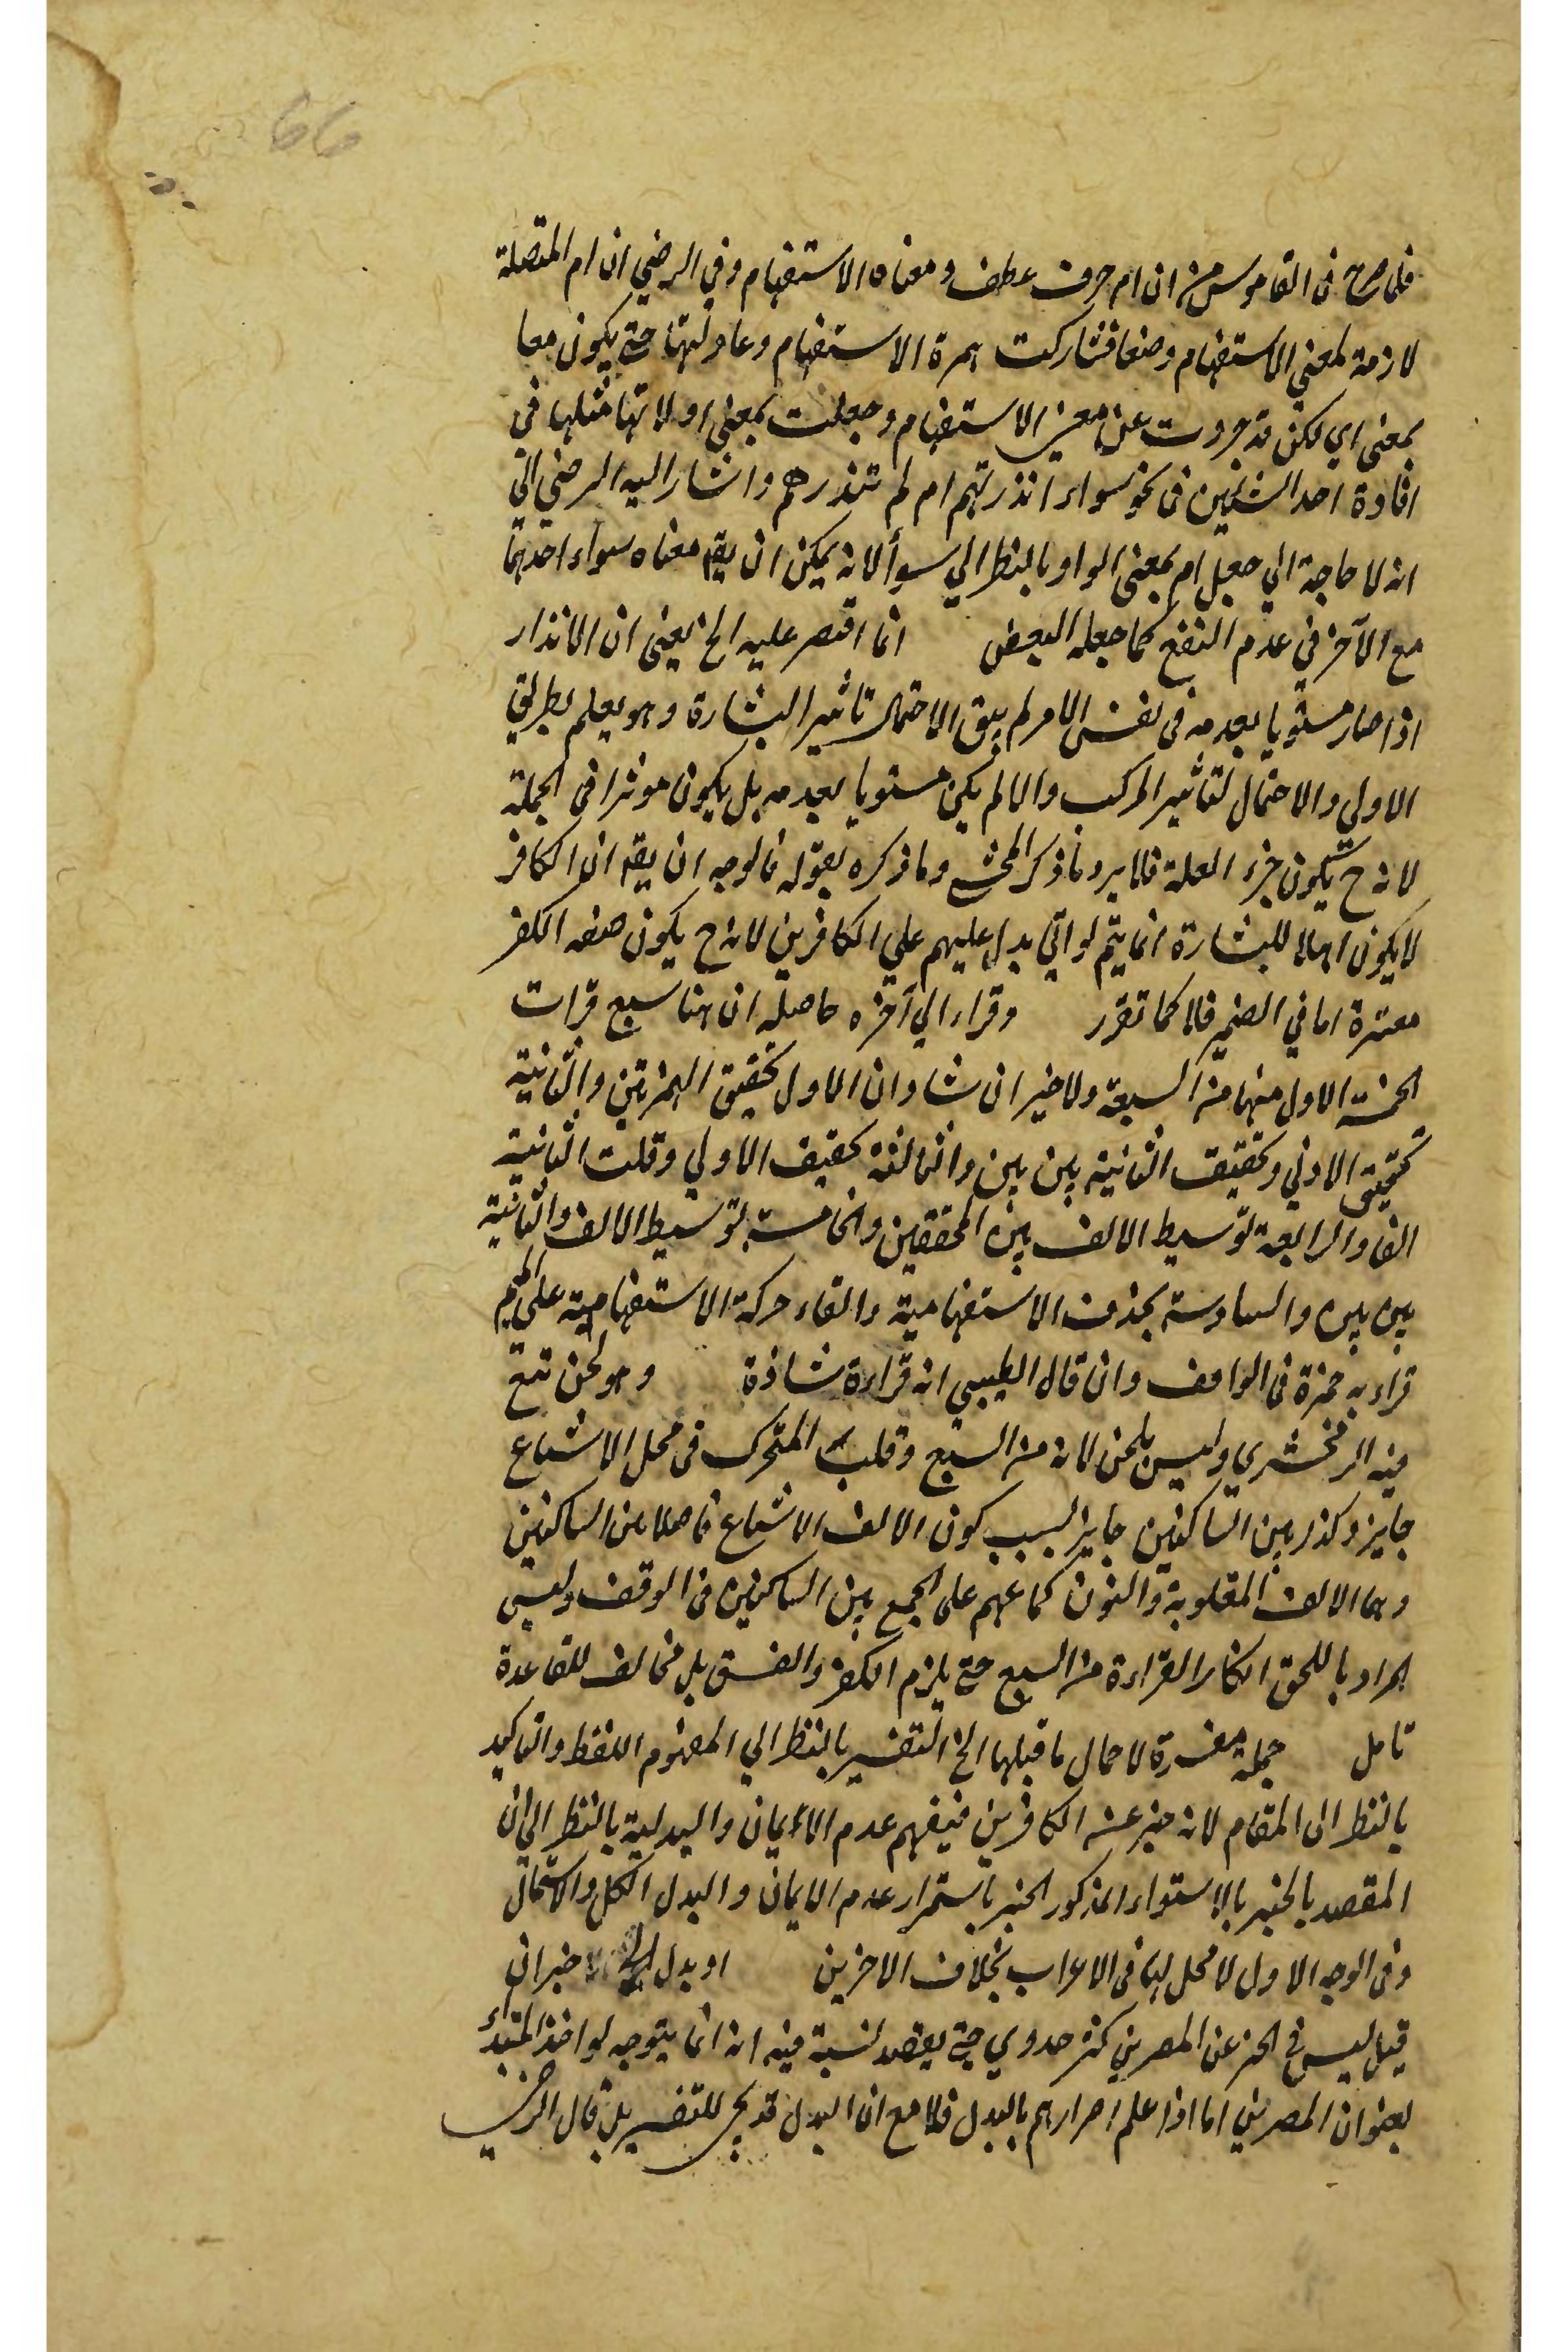 66
فلما صرح فى القاموس من ان ام حرف عطف ومعناه الاستفهام وفي الرضي ان ام المتصلة
لازمة لمعني الاستفهام وضعا فشاركت همزة الاستفهام وعادلتها حتي يكون معا
بمعنى اي لكن قد جردت عن معنى الاستفهام وجعلت بمعنى او لانها مثلها فى
افادة احد الشيئين فى نحو سواء أنذرتهم ام لم تنذرهم واشار اليه الرضي الي
انه لا حاجة الي جعل ام بمعنى الواو بالنظر الي سوأ لانه يمكن ان يقه معناه سواء احدهما
مع الآخر في عدم النفع كما جعله البعض انما اقتصر عليه الخ يعني ان الانذار
اذا صار مستويا بعدمه فى نفس الامر لم يبق الاحتمال تاثير البشارة وهو يعلم بطريق
الاولي والاحتمال لتأثير المركب والا لم يكن مستويا بعدمه بل يكون موثرا في الجملة
لانه ح يكون جزء العلة فلا يرد ما ذكر المحشي وما ذكره بقوله فالوجه ان يقه ان الكافر
لا يكون اهلا للبشارة انما يتم لو اتي بدل عليهم علي الكافرين لانه ح يكون صفة الكفر
معتبرة اما في الضمير فلا كما تقرر وقراء الي آخره حاصله ان هنا سبع قرات
الخمسة الاول منها من السبعة والاخيران شاذان الاول تحقيق الهمزتين والثانية
تحقيق الاولي وتحقيق الثانية بين بين والثالثة تحقيق الاولي وقلت الثانية
الفا والرابعة توسيط الالف بين المحققين والخامسة بتوسيط الالف والثانية
بين بين والسادسة بحذف الاستفهامية والقاء حركة الاستفهامية على الميم
قراء به حمزة فى الواقف وان قال الطيبي انه قراءة شاذة وهو لحن تبع
فيه الزمخشري وليس بلحن لانه من السبع وقلب المتحرك فى محل الاشباع
جايز وكذا بين الساكنين جايز بسبب كون الالف الاشباع فاصلا من الساكنين
وهما الالف المقلوبة والنون كما عهم على الجمع بين الساكنين فى الوقف وليس
المراد باللحق انكار القراءة من السبع حتي يلزم الكفر والفسق بل مخالف للقاعدة
تامل جملة مفسرة لاجمال ما قبلها الخ التفسير بالنظر الي المفهوم اللفظ والتاكيد
بالنظر الى المقام لانه خبر عن الكافرين فيفهم عدم الايمان والبدلية بالنظر الي ان
المقصد بالخبر بالاستواء المذكور الخبر باستمرار عدم الايمان والبدل الكل والاشتمال
وفى الوجه الاول لا محل لها فى الاعراب بخلاف الاخرين او بدل خبر ان
قيل ليس في الخبر عن المصرين كثر جدوي حتي يقصد لنسبة فيه انه انما يتوجه لو اخذ المبتدأ
بعنوان المصرين اما اذا علم اصرارهم بالبدل فلا مع ان البدل قد يجئ للتفسير بل قال الرضي